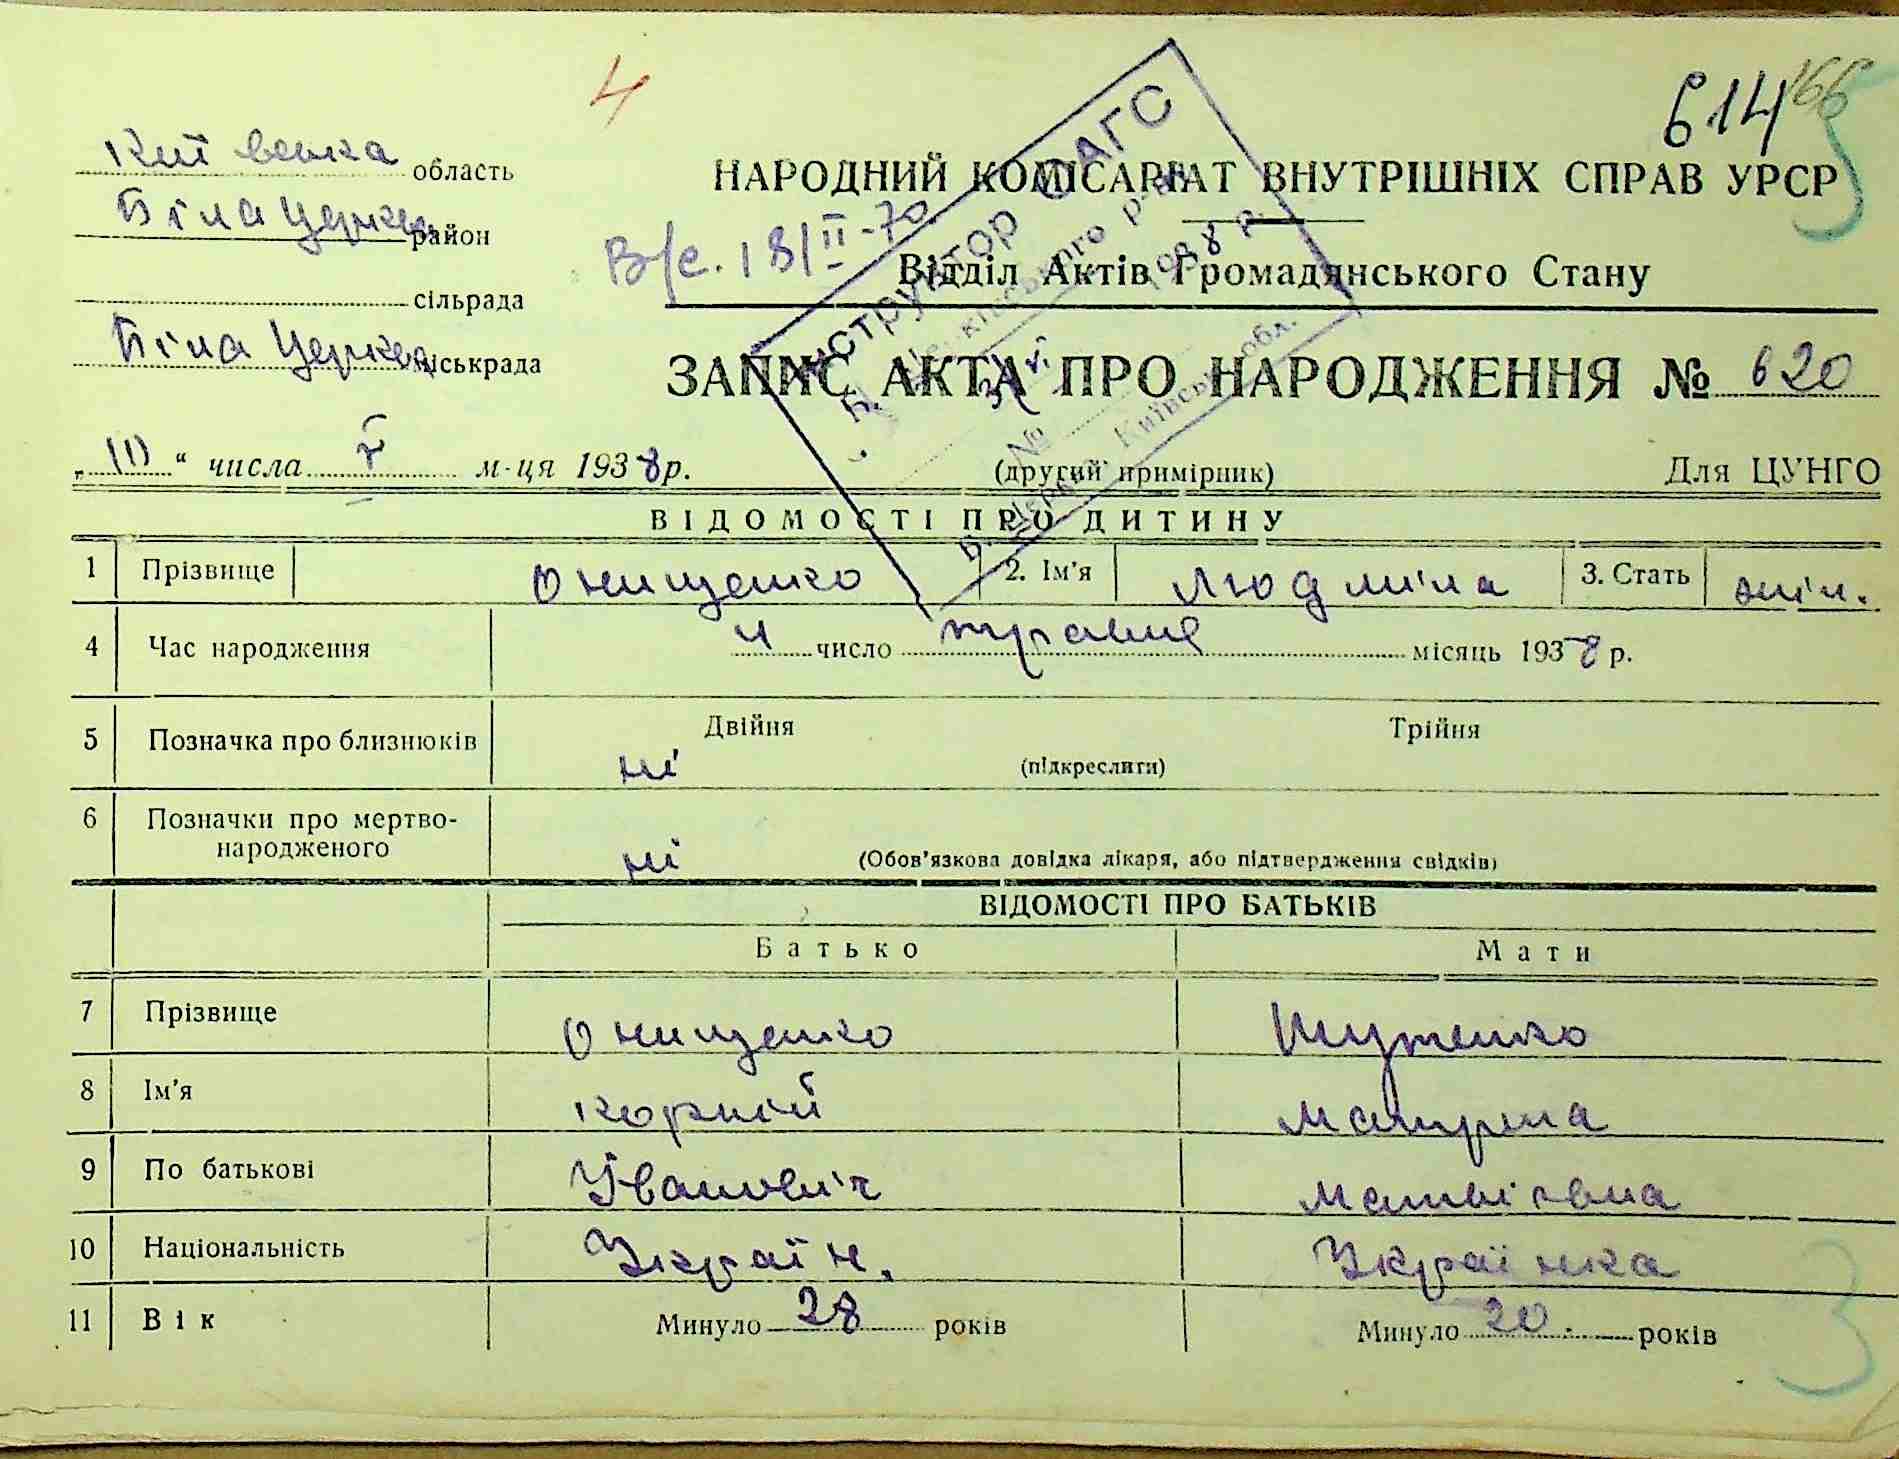 4
614 166
Київська область
Біла Церква район
сільрада
Біла Церква міськрада
НАРОДНИЙ КОМІСАРІАТ ВНУТРІШНІХ СПРАВ УРСР
В/с. 18/II-70
Відділ Актів Громадянського Стану
ЗАПИС АКТА ПРО НАРОДЖЕННЯ № 620
Інструктор ЗАГС
„10“ числа V м-ця 1938 р.
(другий примірник)
Для ЦУНГО
ВІДОМОСТІ ПРО ДИТИНУ
1 Прізвище Онищенко 2. Ім'я Людміла 3. Стать жін.
4 Час народження 4 число травня місяць 1938 р.
5 Позначка про близнюків ні Двійня Трійня
(підкреслити)
6 Позначки про мертво-
народженого ні (Обов'язкова довідка лікаря, або підтвердження свідків)
ВІДОМОСТІ ПРО БАТЬКІВ
Батько Мати
7 Прізвище Онищенко
8 Ім'я Корній Мотрина
9 По батькові Іванович Матвіївна
10 Національність Україн. Українка
11 Вік Минуло 28 років Минуло 20. років
3